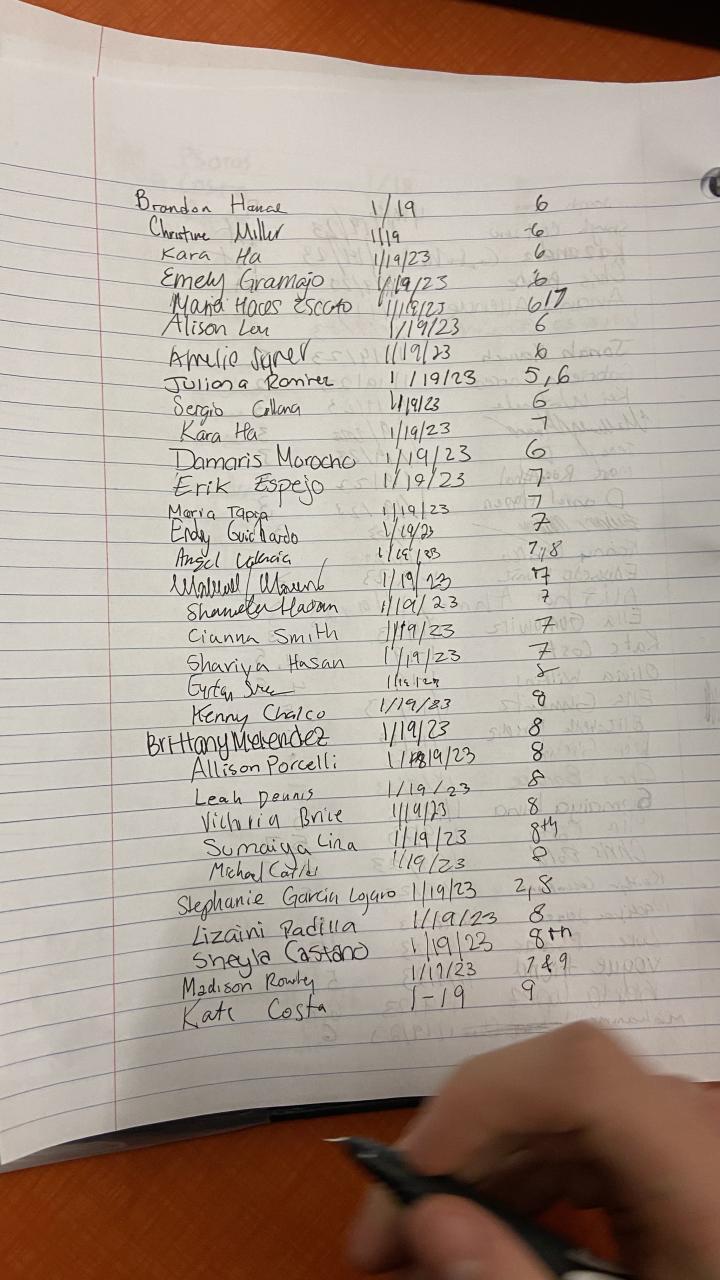 Brandon 1/19 6
Christine Miller 1/19 6
Kara Ha 1/19/23 6
Emely Gramajo 1/19/23 6
Maria Haces Escoto 1/19/23 6/7
Alison Leu 1/19/23 6
Amelie 1/19/23 6
Juliana Ramirez 1/19/23 5,6
Sergio 1/19/23 6
Kara Ha 1/19/23 7
Damaris Morocho 1/19/23 6
Erik Espejo 1/19/23 7
Maria Tapia 1/19/23 7
Endy Guichardo 1/19/23 7
Angel Valencia 1/19/23 7,8
1/19/23 7
Hasan 1/19/23 7
Cianna Smith 1/19/23 7
Shariya Hasan 1/19/23 7
1/19/23 8
Kenny Chalco 1/19/23 8
Brittany Melendez 1/19/23 8
Allison Porcelli 1/19/23 8
Leah Dennis 1/19/23 8
Victoria Brice 1/19/23 8
Sumaiya Lira 1/19/23 8th
Michael 1/19/23 8
Stephanie Garcia Lojano 1/19/23 2,8
Lizaini Padilla 1/19/23 8
Sheyla Castano 1/19/23 8th
Madison Rowley 1/19/23 7&9
Kate Costa 1-19 9